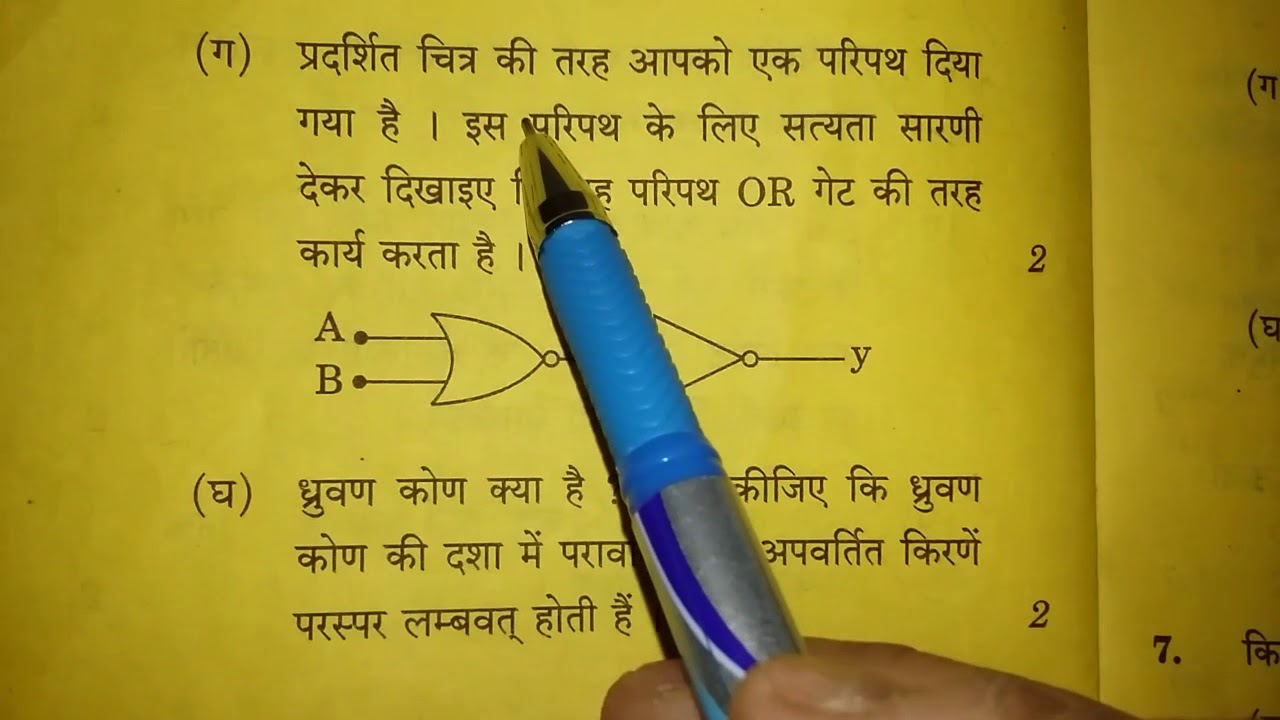 (ग) प्रदर्शित चित्र की तरह आपको एक परिपथ दिया
गया है । इस परिपथ के लिए सत्यता सारणी
देकर दिखाइए परिपथ OR गेट की तरह
कार्य करता है । 2
A
B
y
(घ) ध्रुवण कोण क्या है कीजिए कि ध्रुवण
कोण की दशा में अपवर्तित किरणें
परस्पर लम्बवत् होती हैं 2
(ग
(घ
7. कि